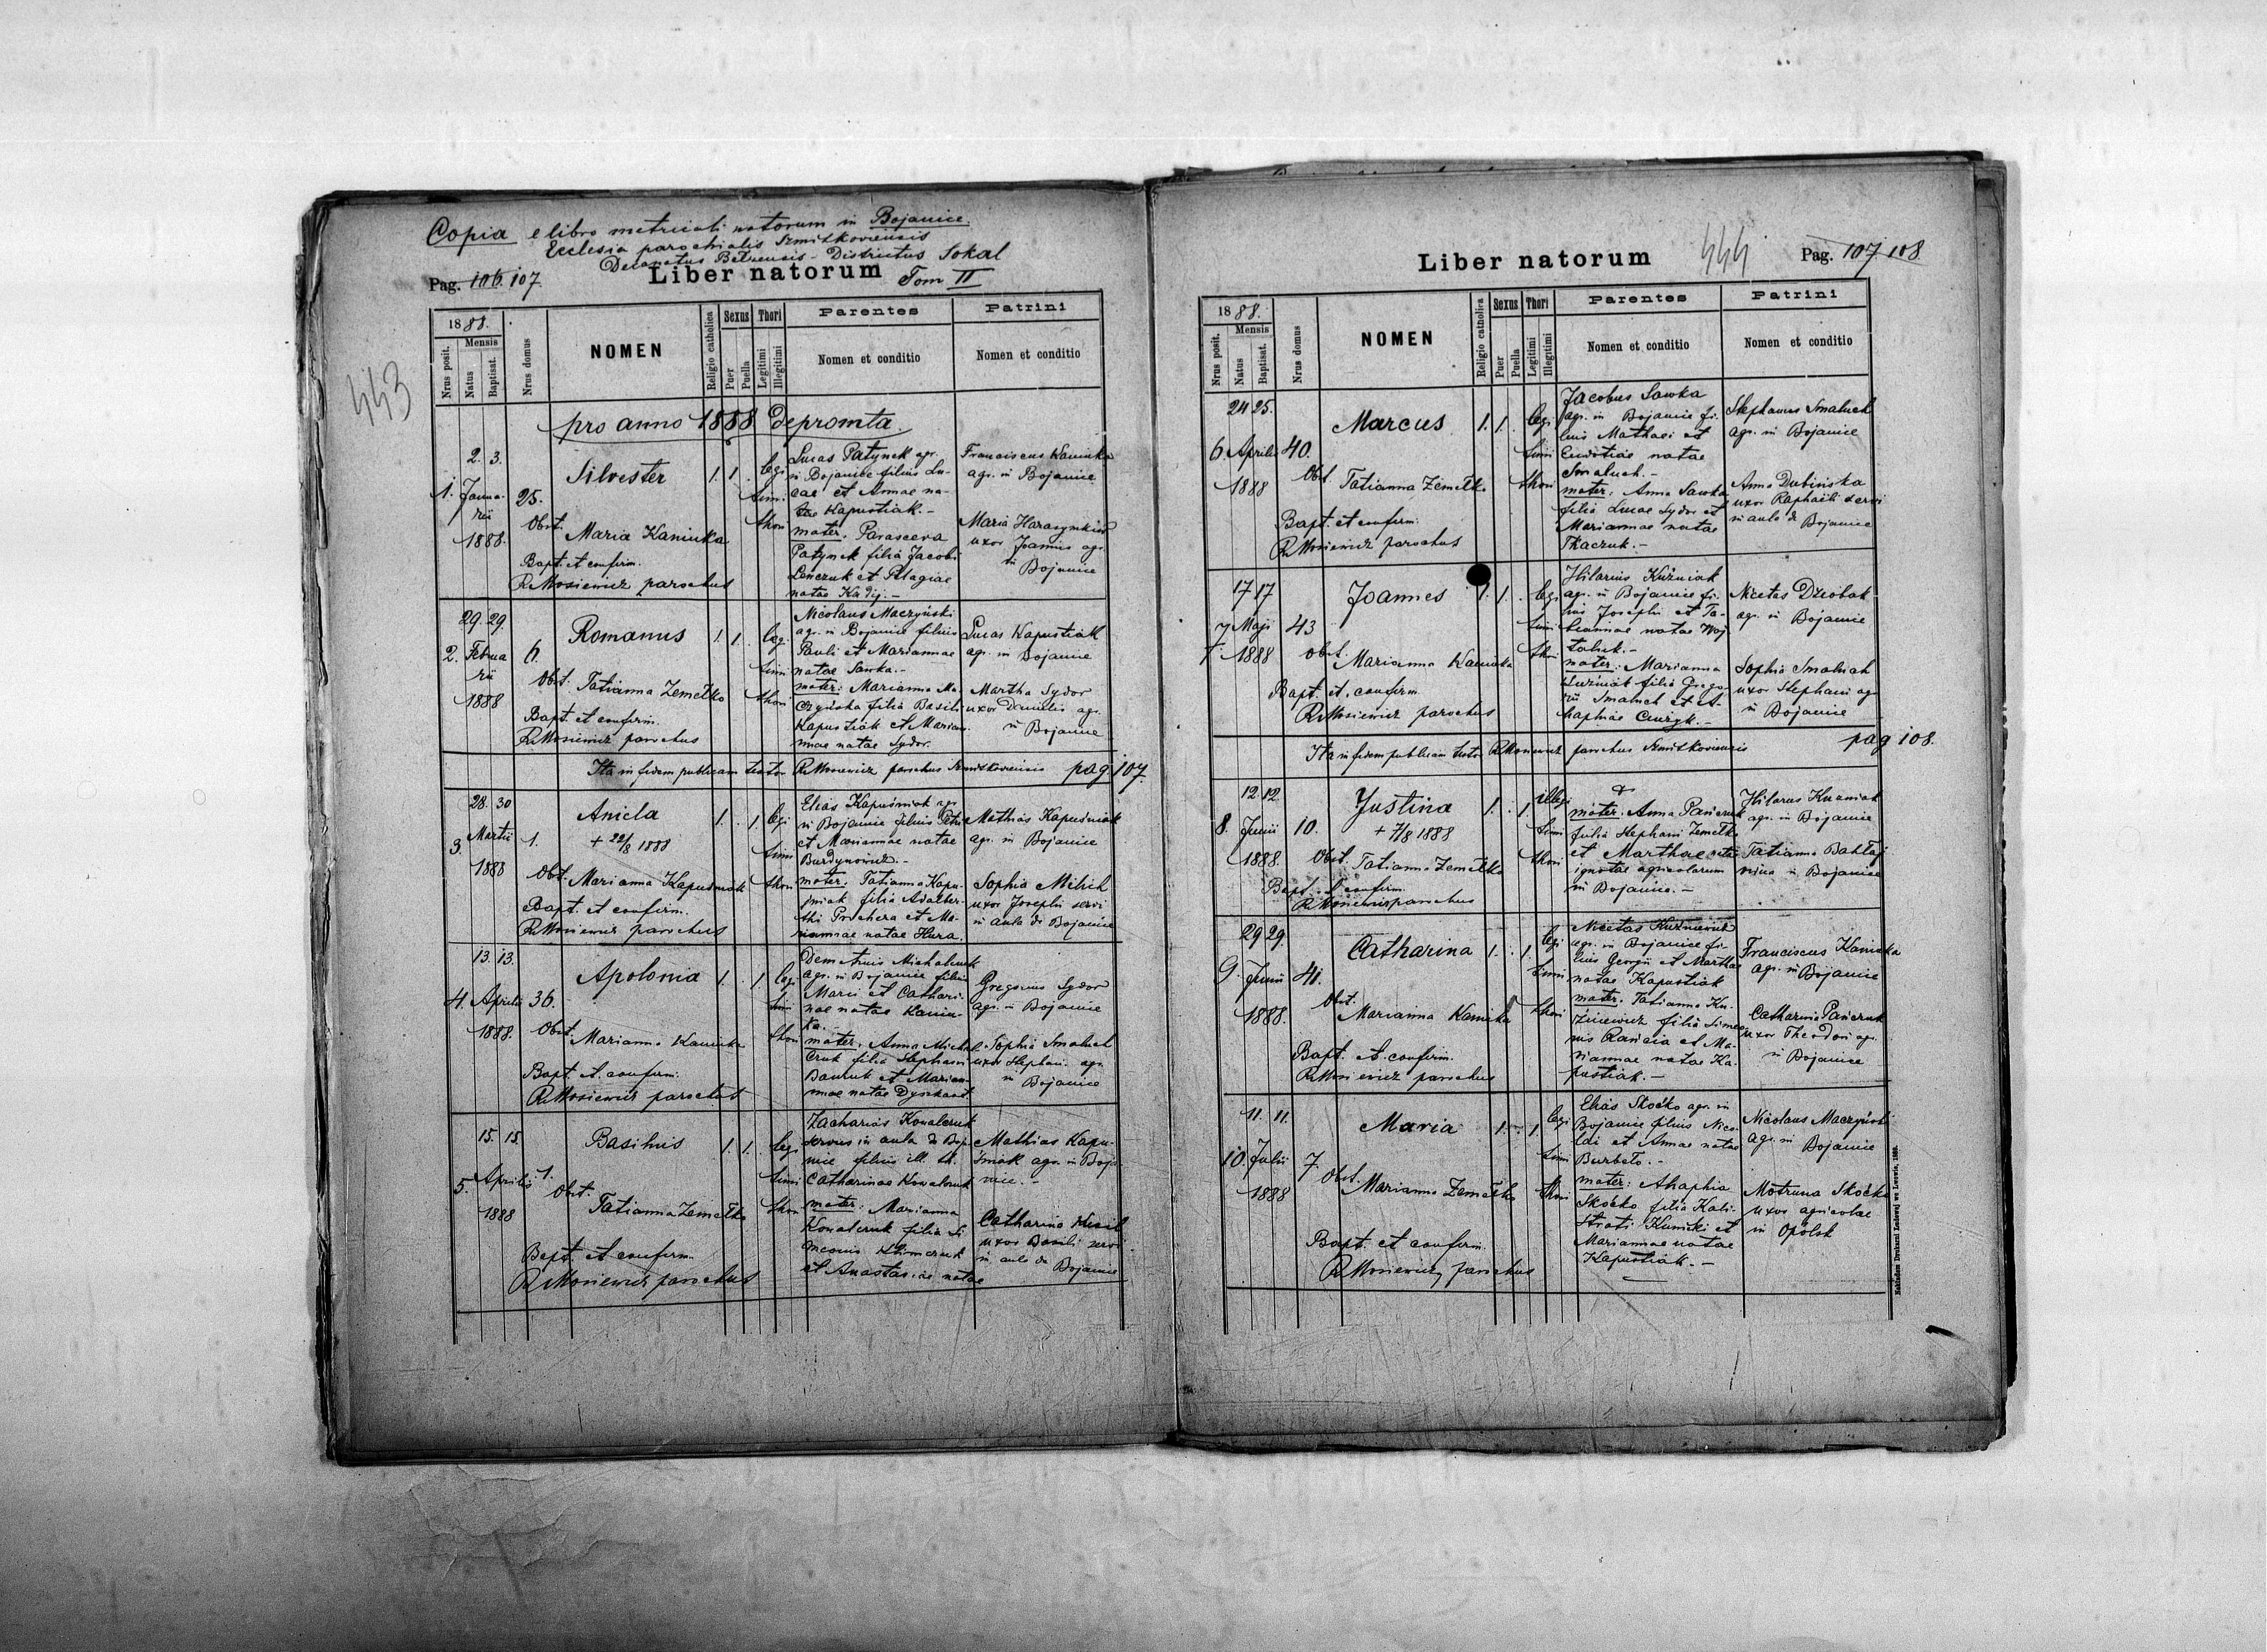 443
Copia e libro metricali natorum in Bojanice
Ecclesia parochialis Szmitkoviensis
Decanatus Belzensis - Districtus Sokal
Pag. 106. 107. Liber natorum Tom II
1888.
Mensis
Nrus posit.
Natus
Baptisat.
Nrus domus
NOMEN
Religio catholica
Sexus
Puer
Puella
Thori
Legitimi
Illegitimi
Parentes
Nomen et conditio
Patrini
Nomen et conditio
pro anno 1888 Depromta.
2. 3.
1. Janua-
rii
1888.
25.
Silvester
Obst.
Maria Kaniuka
Bapt. et confirm.
R. Mosiewicz parochus
1. 1.
legi
timi
thori
Lucas Patynek agr.
in Bojanice filius Lu-
cae et Annae na-
tae Kapustiak.-
mater: Parasceva
Patynek filia Jacobi
Lenczuk et Pelagiae
natae Kudij.-
Franciscus Kaniuka
agr. in Bojanice
Maria
uxor Joannis agr.
in Bojanice
29. 29.
2. Februa
rii
1888
6.
Romanus
Obst. Tatianna Zemełko
Bapt. et confirm.
R. Mosiewicz parochus
1. 1.
legi
timi
thori
Nicolaus Maczyński
agr. in Bojanice filius
Pauli et Mariannae
natae Sawka.-
mater: Marianna Ma-
czyńska filia Basili
Kapustiak et Marian-
nae natae Sydor.
Lucas Kapustiak
agr. in Bojanice
Martha Sydor
uxor Danielis agr.
in Bojanice
Ita in fidem publicam testor R. Mosiewicz parochus Szmitkoviensis pag. 107.
28. 30
3. Martii
1888
1.
Anicla
+ 22/8 1888
Obst. Marianna Kapuśniak
Bapt. et confirm.
R. Mosiewicz parochus
1. . 1.
legi
timi
thori
Elias Kapuśniak agr.
in Bojanice filius Petri
et Mariannae natae
Burdynowicz.-
mater: Tatianna Kapu-
śniak filia Adalber-
thi Prochera et Ma-
riannae natae Hura.
Mathias Kapuśniak
agr. in Bojanice
Sophia Milich
uxor Josephi servi
in aula de Bojanice
13. 13.
4. Aprilis
1888.
36.
Apolonia
Obst. Marianna Kaniuka
Bapt. et confirm.
R. Mosiewicz parochus
1. . 1
legi
timi
thori
Demetrius Michalczuk
agr. in Bojanice filius
Marii et Cathari-
nae natae Kaniu-
ka.-
mater: Anna Michal-
czuk filia Stephani
et Marian-
nae natae
Gregorius Sydor
agr. in Bojanice
Sophia Smaluch
uxor Stephani agr.
in Bojanice
15. 15.
5. Aprilis
1888
1.
Basilius
Obst.
Tatianna Zemełko
Bapt. et confirm.
R. Mosiewicz parochus
1. 1.
legi
timi
thori
Zacharias Kowalczuk
servus in aula de Boja-
nice filius ill. th.
Catharinae Kowalczuk
mater: Marianna
Kowalczuk filia Si-
meonis Klimczuk
et Anastasiae natae
Mathias Kapu-
śniak agr. in Boja-
nice.-
Catharina Kisil
uxor Basili servi
in aula de Bojanice
444
Liber natorum Pag. 107 108
1888.
Mensis
Nrus posit.
Natus
Baptisat.
Nrus domus
NOMEN
Religio catholica
Sexus
Puer
Puella
Thori
Legitimi
Illegitimi
Parentes
Nomen et conditio
Patrini
Nomen et conditio
24 25.
6. Aprilis
1888
40.
Marcus
Obst. Tatianna Zemełko
Bapt. et confirm.
R. Mosiewicz parochus
1. 1.
legi
timi
thori
Jacobus Sawka
agr. in Bojanice fi-
lius Mathaei et
Eudotiae natae
Smaluch.-
mater: Anna Sawka
filia Lucae Sydor et
Mariannae natae
Tkaczuk.-
Stephanus Smaluch
agr. in Bojanice
Anna Dubińska
uxor Raphaeli servi
in aula de Bojanice
17 17
7 Maji
1888
43
Joannes
Obst. Marianna Kaniuka
Bapt. et. confirm
R. Mosiewicz parochus
1. 1.
legi
timi
thori
Hilarius Kuźniak
agr. in Bojanice fi-
lius Josephi et Ta-
tiannae natae Woj-
taluk.-
mater: Marianna
Kuźniak filia Grego-
rii Smaluch et A-
haphiae
Nicetas Dziobak
agr. in Bojanice
Sophia Smaluch
uxor Stephani agr.
in Bojanice
Ita in fidem publicam testor R. Mosiewicz parochus Szmitkoviensis pag 108.
12. 12.
8. Junii
1888.
10.
Justina
+ 7/8 1888
Obst. Tatianna Zemełko
Bapt. et confirm.
R. Mosiewicz parochus
1. . 1.
illegi
timi
thori
mater: Anna Pańczuk
filia Stephani Zemełko
et Marthae
ignotae agricolarum
in Bojanice.-
Hilarus Kuzniak
agr. in Bojanice
Tatianna Bahłaj
in Bojanice
29 29.
9. Junii
1888.
41.
Catharina
Obst.
Marianna Kaniuka
Bapt. et. confirm.
R. Mosiewicz parochus
1. . 1.
legi
timi
thori
Nicetas Kuźniewicz
agr. in Bojanice fi-
lius Georgii et Marthae
natae Kapustiak
mater: Tatianna Ku-
źniewicz filia Simeo-
nis et Ma-
riannae natae Ka-
pustiak.-
Franciscus Kaniuka
agr. in Bojanice
Catharina Pańczuk
uxor Theodori agr.
in Bojanice
11. 11.
10. Julii
1888
7.
Maria
Obst. Marianna Zemełko
Bapt. et confirm.
R. Mosiewicz parochus
1. . 1.
legi
timi
thori
Elias Skoćko agr. in
Bojanice filius Nico-
lai et Annae natae
Burbeło.-
mater: Ahaphia
Skoćko filia Kali-
strati Kunicki et
Mariannae natae
Kapustiak.-
Nicolaus Maczyński
agr. in Bojanice
Motruna Skoćko
uxor agricolae
in Opolsk
Nakładem Drukarni Ludowej we Lwowie, 1888.